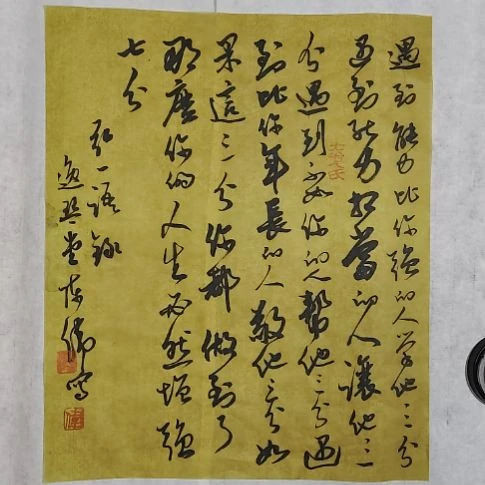 遇到能力比你强的人学他三分
遇到能力相當的人讓他三
分遇到不如你的人幫他三分遇
到比你年長的人敬他三分如
果這三分你都做到了
那麼你的人生必然增強
七分
弘一語錄
逸琴堂陈伟寫